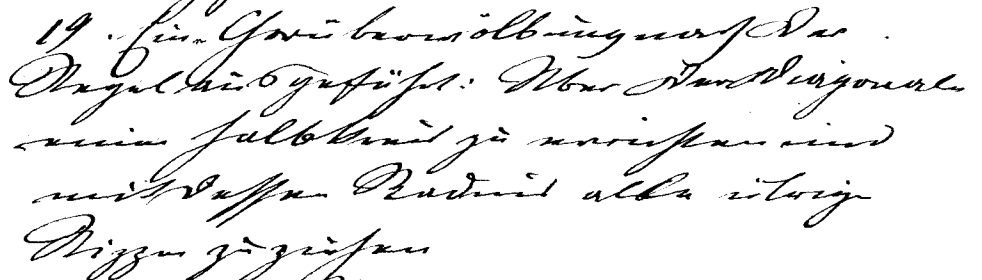 19. Ein Chorüberwölbung nach der
Regel ausgeführt: Über der Diagonale
einen Halbkreis zu errichten und
mit dessen Radius alle übrige
Rippen zu ziehen